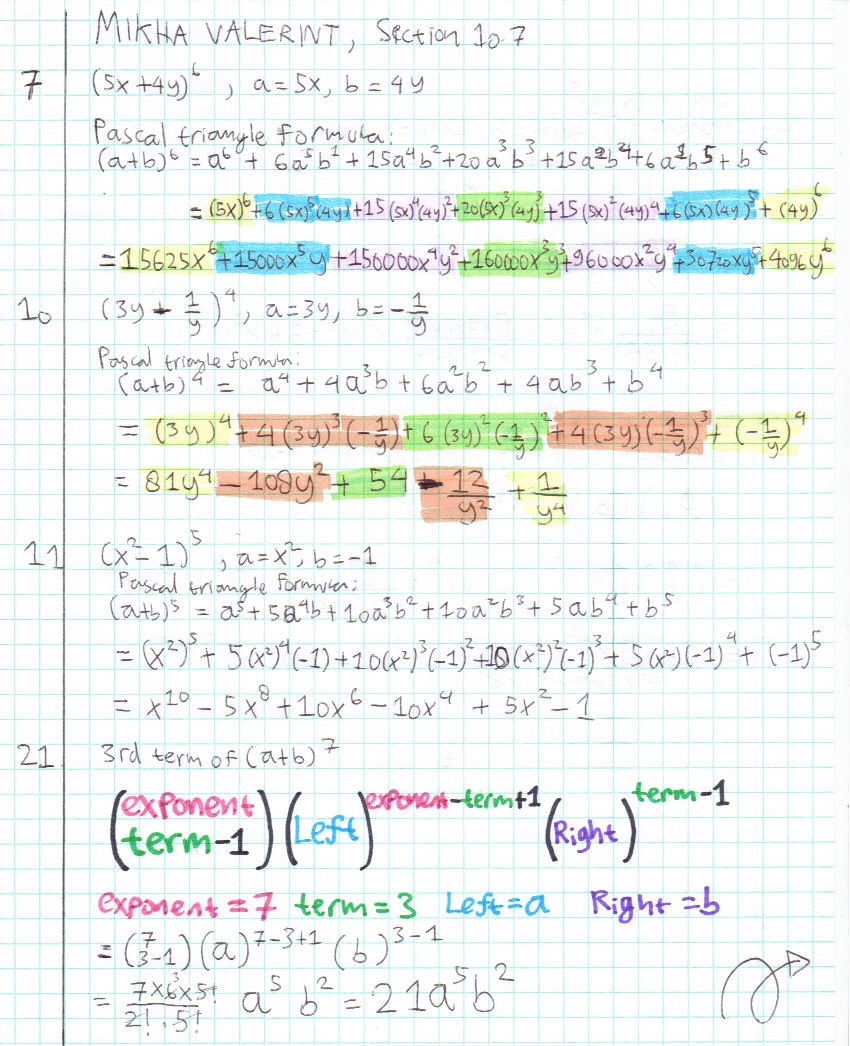 MIKHA VALERINT, Section 10.7
7 (5x+4y)^6 , a=5x, b=4y
Pascal triangle formula:
(a+b)^6 = a^6 + 6a^5b^1 + 15a^4b^2 + 20a^3b^3 + 15a^2b^4 + 6a^1b^5 + b^6
= (5x)^6 + 6(5x)^5(4y) + 15(5x)^4(4y)^2 + 20(5x)^3(4y)^3 + 15(5x)^2(4y)^4 + 6(5x)(4y)^5 + (4y)^6
= 15625x^6 + 15000x^5y + 150000x^4y^2 + 160000x^3y^3 + 96000x^2y^4 + 30720xy^5 + 4096y^6
10 (3y - 1/y)^4, a=3y, b=-1/y
Pascal triangle formula:
(a+b)^4 = a^4 + 4a^3b + 6a^2b^2 + 4ab^3 + b^4
= (3y)^4 + 4(3y)^3(-1/y) + 6(3y)^2(-1/y)^2 + 4(3y)(-1/y)^3 + (-1/y)^4
= 81y^4 - 108y^2 + 54 - 12/y^2 + 1/y^4
11 (x^2-1)^5 , a=x^2, b=-1
Pascal triangle formula:
(a+b)^5 = a^5 + 5a^4b + 10a^3b^2 + 10a^2b^3 + 5ab^4 + b^5
= (x^2)^5 + 5(x^2)^4(-1) + 10(x^2)^3(-1)^2 + 10(x^2)^2(-1)^3 + 5(x^2)(-1)^4 + (-1)^5
= x^10 - 5x^8 + 10x^6 - 10x^4 + 5x^2 - 1
21 3rd term of (a+b)^7
(exponent term-1) (Left)^exponent-term+1 (Right)^term-1
exponent = 7 term = 3 Left = a Right = b
= (7 3-1) (a)^7-3+1 (b)^3-1
= 7×6 3×5!/2!·5! a^5 b^2 = 21a^5b^2